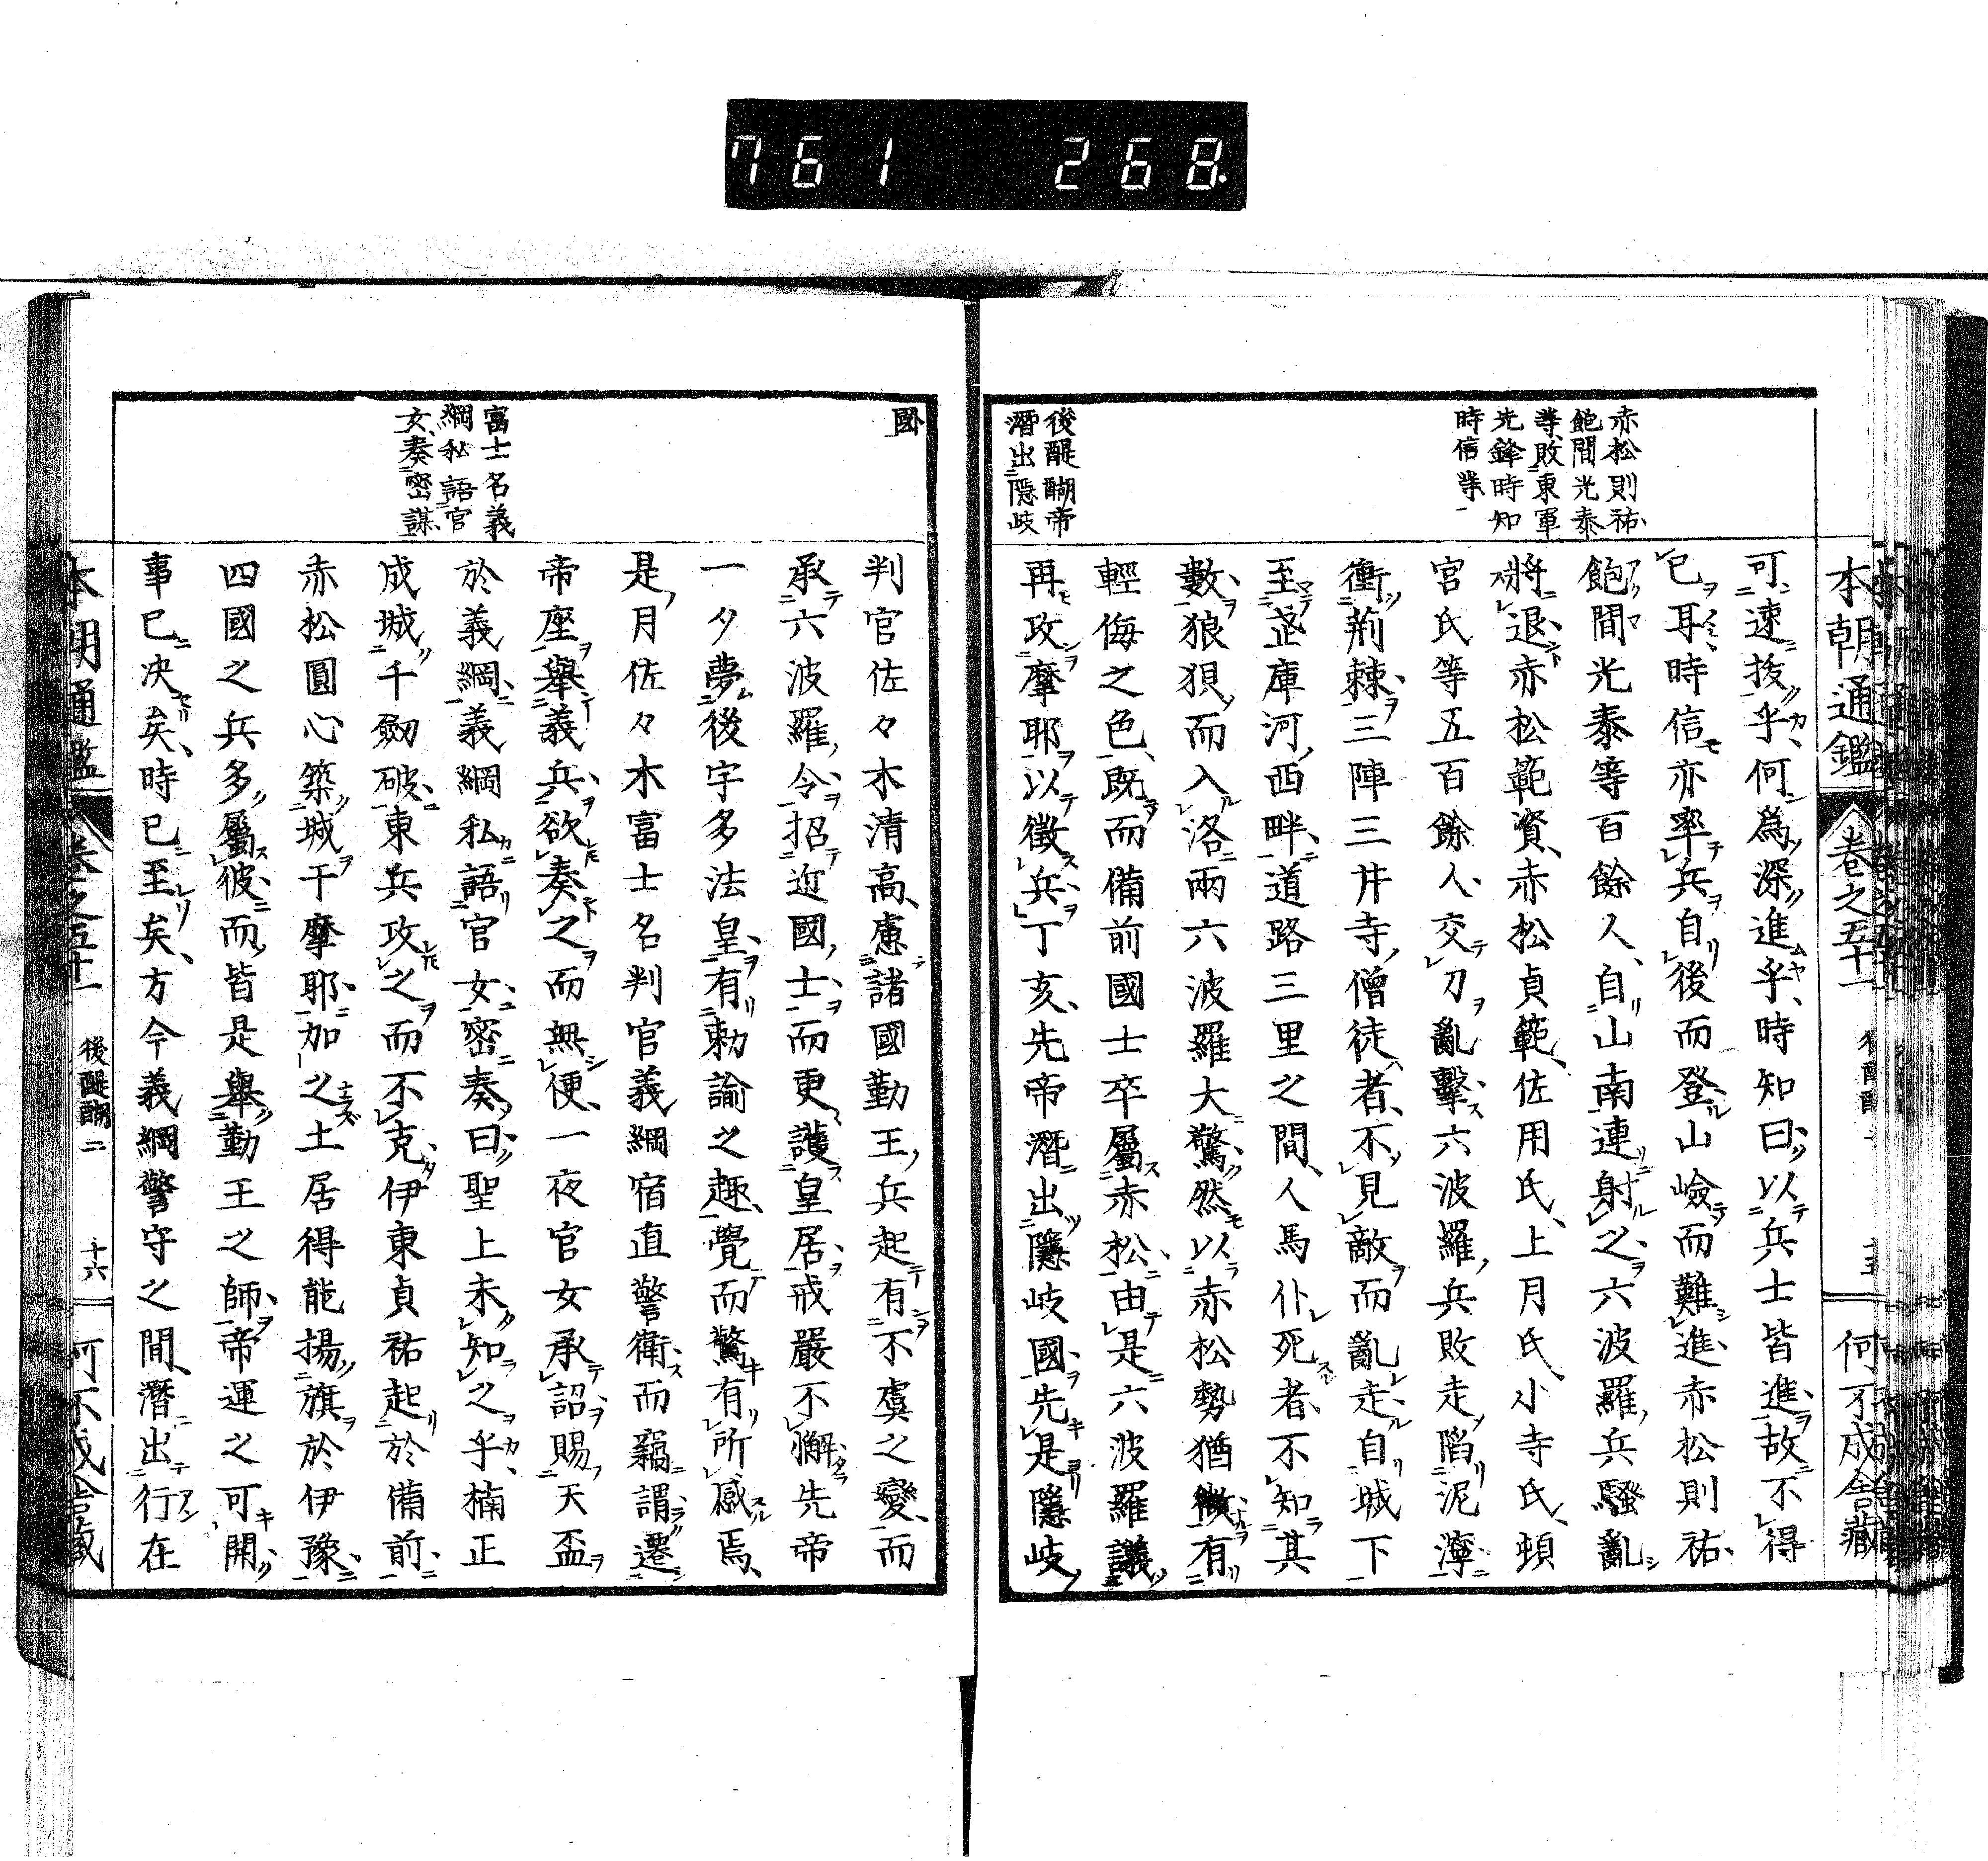 761 268.
本朝通鑑 卷之五十一 何不成舍藏
赤松則祐
飽間光泰
等敗東軍
先鋒時知
時信等
後醍醐帝
潛出隱岐
可速拔乎何為深進乎時知曰以兵士皆進故不得
已耳時信亦率兵自後而登山嶮而難進赤松則祐
飽間光泰等百餘人自山南連射之六波羅兵騷亂
將退赤松範資赤松貞範佐用氏上月氏小寺氏頓
宮氏等五百餘人交刀亂擊六波羅兵敗走陷泥濘
衝荊棘三陣三井寺僧徒者不見敵而亂走自城下
至武庫河西畔道路三里之間人馬仆死者不知其
數狼狽而入洛兩六波羅大驚然以赤松勢猶微有
輕侮之色既而備前國士卒屬赤松由是六波羅議
再攻摩耶以徵兵丁亥先帝潛出隱岐國先是隱岐
國
富士名義
綱私語官
女奏密謀
判官佐々木清高慮諸國勤王兵起有不虞之變而
承六波羅令招近國士而更護皇居戒嚴不懈先帝
一夕夢後宇多法皇有勅諭之趣覺而驚有所感焉
是月佐々木富士名判官義綱宿直警衛而竊謂遷
帝座舉義兵欲奏之而無便一夜官女承詔賜天盃
於義綱義綱私語官女密奏曰聖上未知之乎楠正
成城千劒破東兵攻之而不克伊東貞祐起於備前
赤松圓心築城于摩耶加之土居得能揚旗於伊豫
四國之兵多屬彼而皆是舉勤王之師帝運之可開
事已決矣時已至矣方今義綱警守之間潛出行在
本朝通鑑 卷之五十一 後醍醐二 十六 何不成舍藏